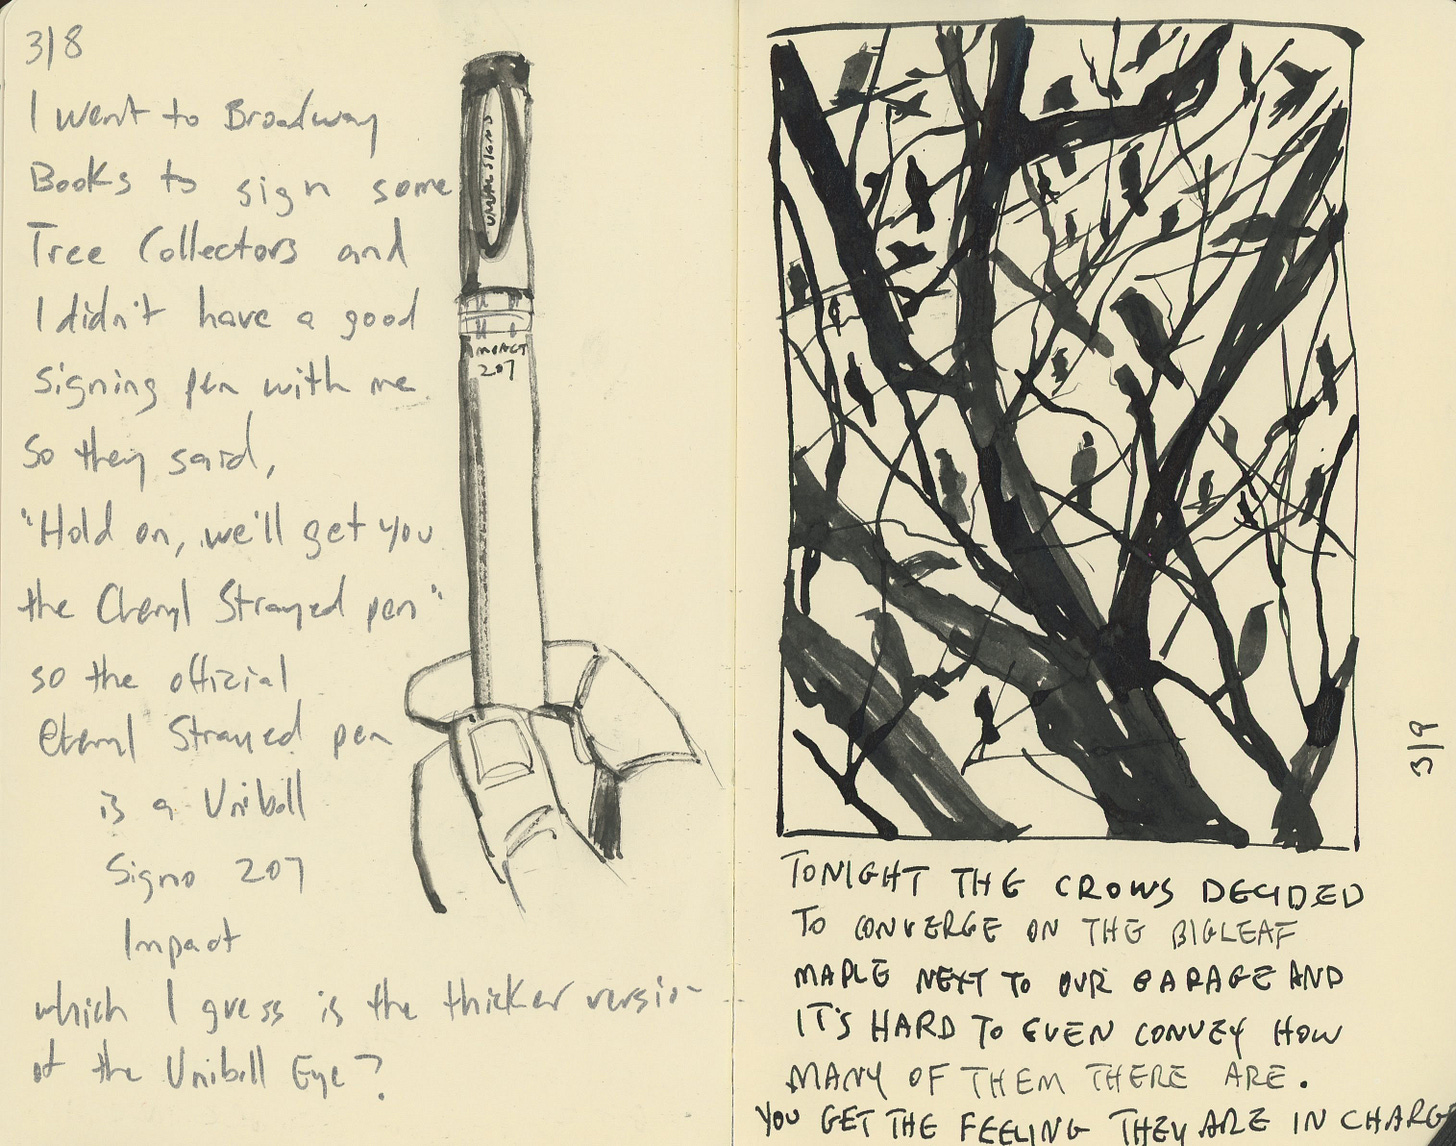 3/8
I went to Broadway
Books to sign some
Tree Collectors and
I didn't have a good
signing pen with me
so they said,
"Hold on, we'll get you
the Cheryl Strayed pen"
so the official
Cheryl Strayed pen
is a Uniball
Signo 207
Impact
which I guess is the thicker version
of the Uniball Eye?
UNIBALL SIGNO
IMPACT
207
TONIGHT THE CROWS DECIDED
TO CONVERGE ON THE BIGLEAF
MAPLE NEXT TO OUR GARAGE AND
IT'S HARD TO EVEN CONVEY HOW
MANY OF THEM THERE ARE.
YOU GET THE FEELING THEY ARE IN CHARGE
3/9